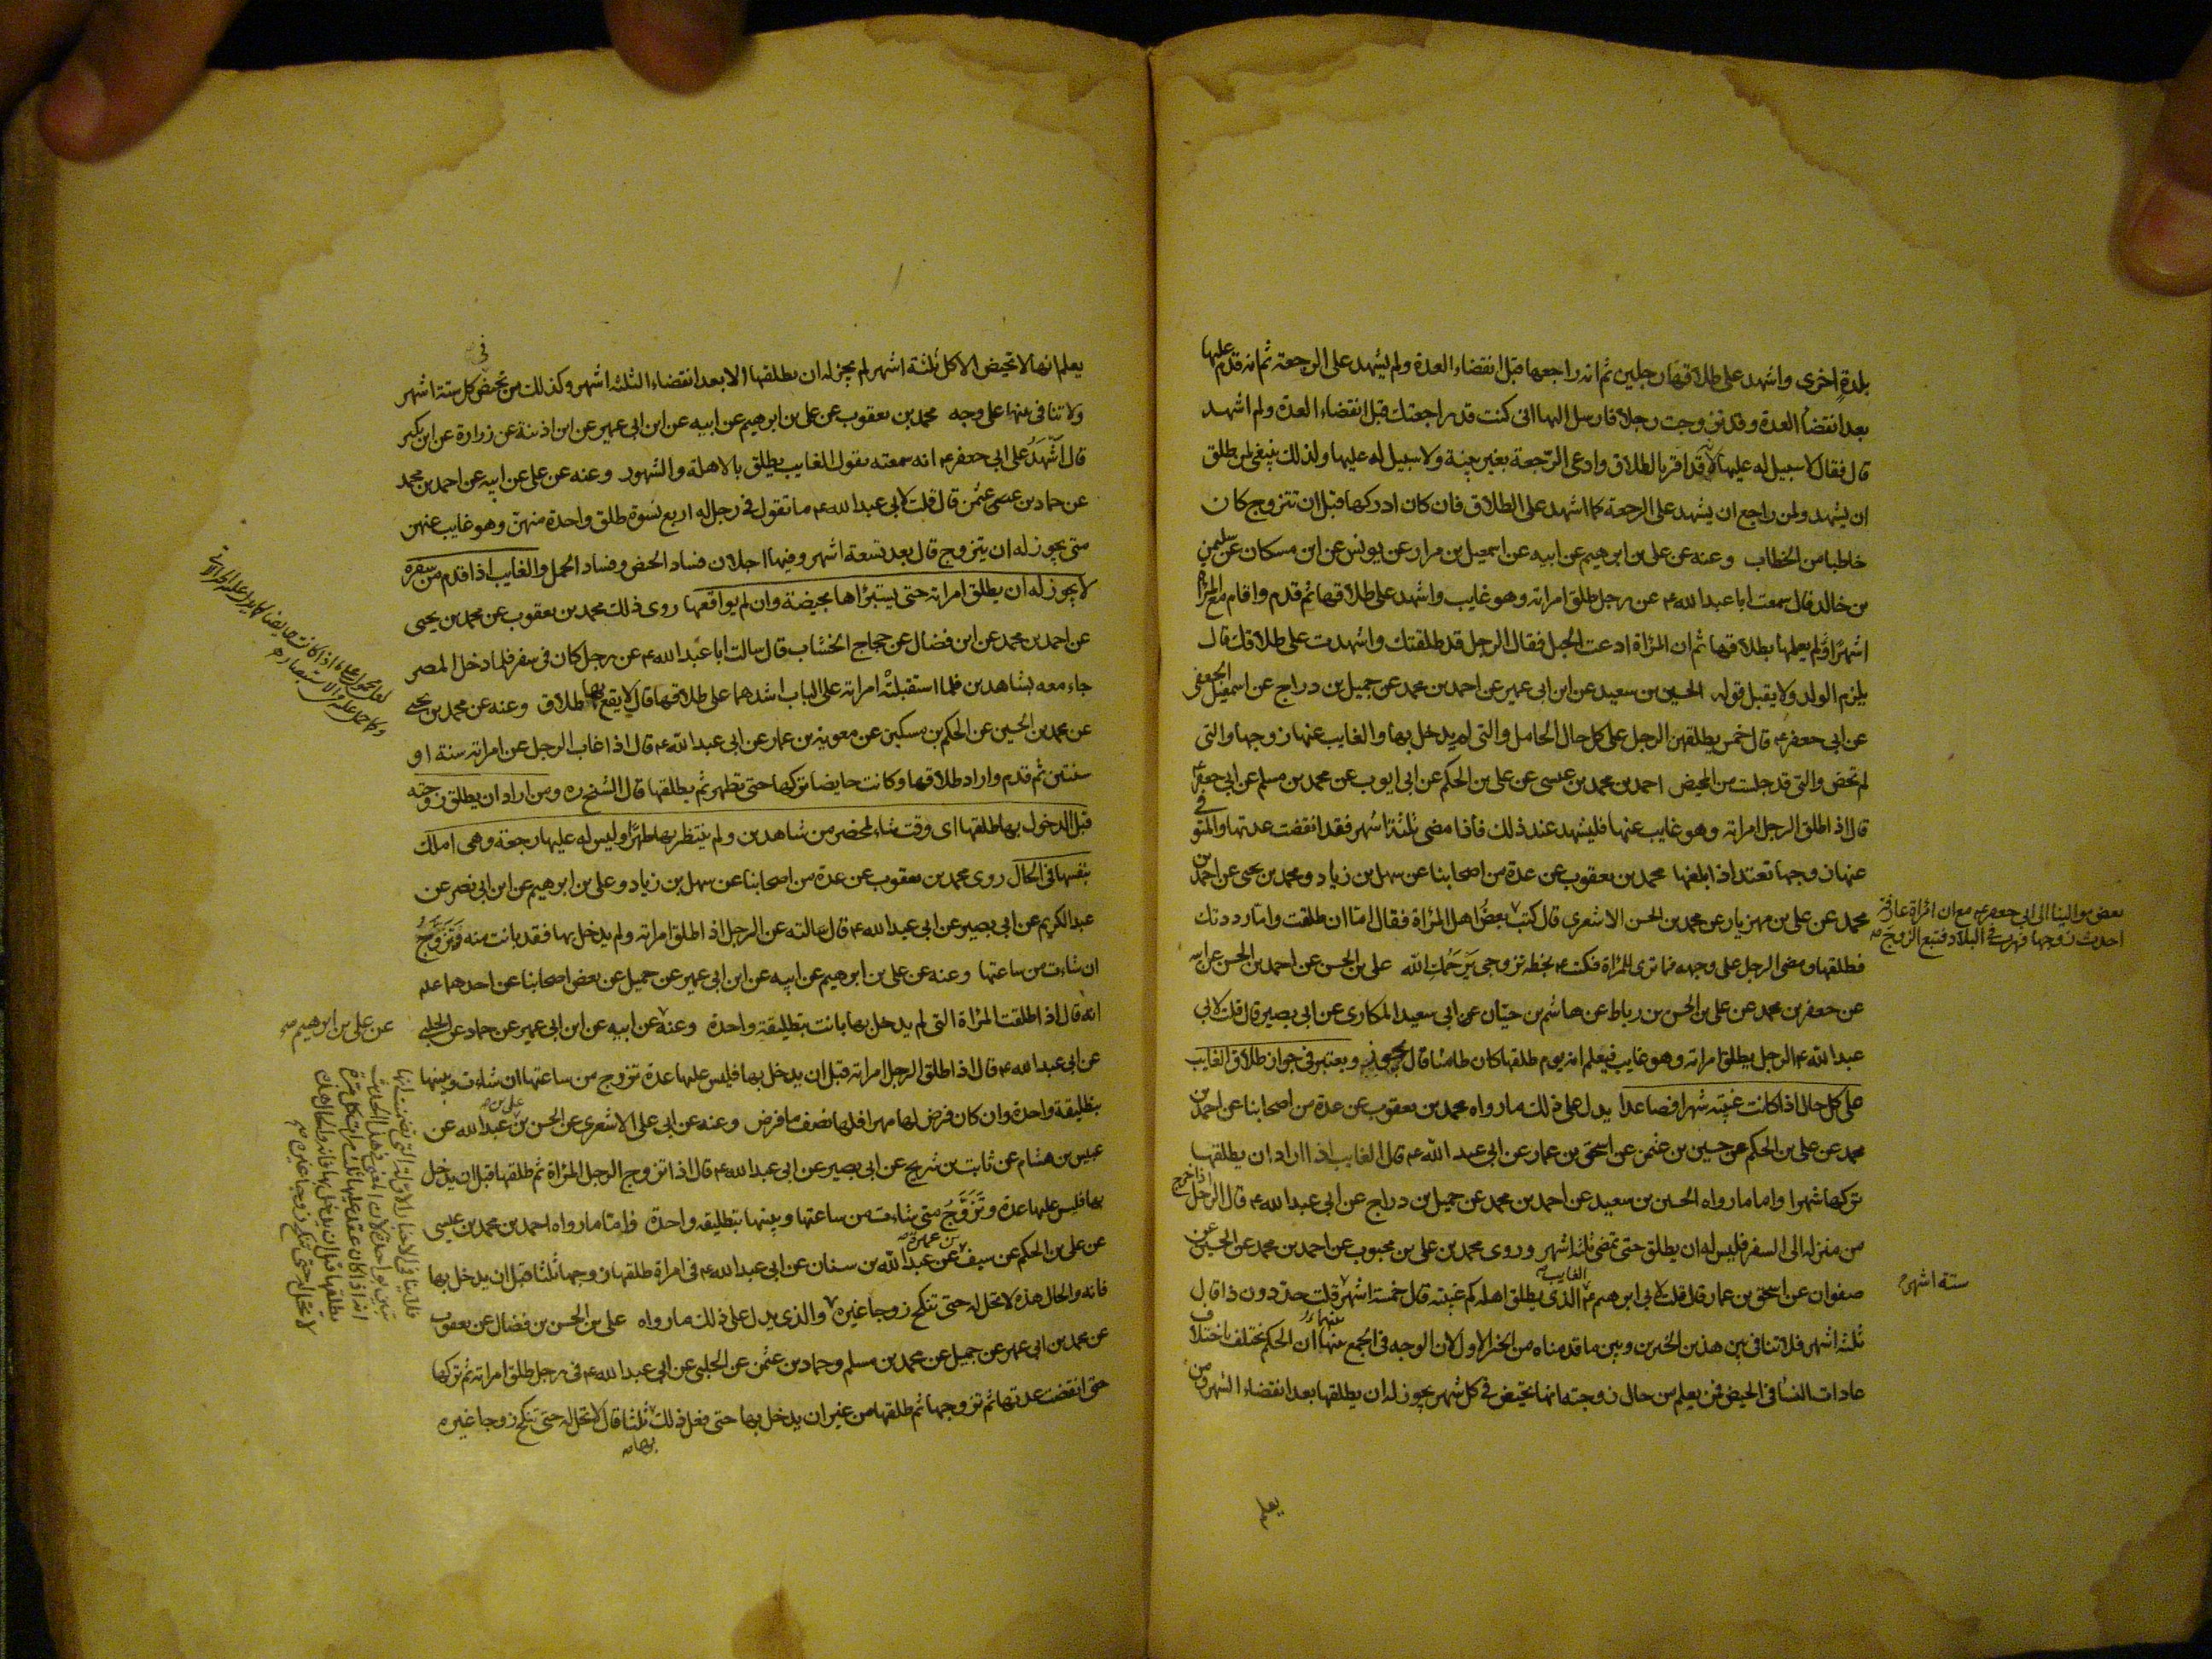 بلدة اخرى واشهد على طلاقها رجلين ثم انه راجعها قبل انقضاء العدة ولم يشهد على الرجعة ثم انه قدم عليها
بعد انقضاء العدة وقد تزوجت رجلا فارسل اليها انى كنت قد راجعتك قبل انقضاء العدة ولم اشهد
قال فقال لا سبيل له عليها لانه قد اقر بالطلاق وادعى الرجعة بغير بينة ولا سبيل له عليها ولذلك ينبغى لمن طلق
ان يشهد ولمن راجع ان يشهد على الرجعة كما اشهد على الطلاق فان كان ادركها قبل ان تتزوج كان
خاطبا من الخطاب وعنه عن على بن ابرهيم عن ابيه عن اسمعيل بن مرار عن يونس عن ابن مسكان عن سليمن
بن خالد قال سمعت ابا عبد الله ع عن رجل طلق امراته وهو غايب واشهد على طلاقها ثم قدم واقام مع المراة
اشهرا ولم يعلمها بطلاقها ثم ان المراة ادعت الحبل فقال الرجل قد طلقتك واشهدت على طلاقك قال
يلزم الولد ولا يقبل قوله الحسين بن سعيد عن ابن ابى عمير عن احمد بن محمد عن جميل بن دراج عن اسمعيل الجعفى
عن ابى جعفر ع قال خمس يطلقهن الرجل على كل حال الحامل والتى لم يدخل بها والغايب عنها زوجها والتى
لم تحض والتى قد جلست من المحيض احمد بن محمد بن عيسى عن على بن الحكم عن ابى ايوب عن محمد بن مسلم عن ابى جعفر ع
قال اذا طلق الرجل امراته وهو غايب عنها فليشهد عند ذلك فاذا مضى ثلثة اشهر فقد انقضت عدتها والمتوفى
عنها زوجها تعتد اذا بلغها محمد بن يعقوب عن عدة من اصحابنا عن سهل بن زياد ومحمد بن يحيى عن احمد بن
محمد عن على بن مهزيار عن محمد بن الحسن الاشعرى قال كتب بعض اهل المراة فقال اما ان طلقت واما رددتك
بعض موالينا الى ابى جعفر ع مع ان امراة عارفة
احدث زوجها فهرب فى البلاد فتبع الزوج
فطلقها ومضى الرجل على وجهه فما ترى للمراة فكتب ع بخطه تزوجى يرحمك الله على بن الحسن عن احمد بن الحسن عن ابيه
عن جعفر بن محمد عن على بن الحسن بن رباط عن هاشم بن حيان عن ابى سعيد المكارى عن ابى بصير قال قلت لابى
عبد الله ع الرجل يطلق امراته وهو غايب فيعلم انه يوم طلقها كان طامثا قال يجوز ويعتبر فى جواز طلاق الغايب
على كل حال اذا كانت غيبته شهرا فصاعدا يدل على ذلك ما رواه محمد بن يعقوب عن عدة من اصحابنا عن احمد بن
محمد عن على بن الحكم عن حسين بن عثمن عن اسحق بن عمار عن ابى عبد الله ع قال الغايب اذا اراد ان يطلقها
تركها شهرا واما ما رواه الحسين بن سعيد عن احمد بن محمد عن جميل بن دراج عن ابى عبد الله ع قال الرجل اذا خرج
من منزله الى السفر فليس له ان يطلق حتى تمضى ثلثة اشهر وروى محمد بن على بن محبوب عن احمد بن محمد عن الحسين عن
صفوان عن اسحق بن عمار قال قلت لابى ابرهيم ع الغايب الذى يطلق اهله كم غيبته قال خمسة اشهر قلت حد دون ذا قال
ستة اشهر
ثلثة اشهر فلا تنافى بين هذين الخبرين وبين ما قدمناه من الخبر الاول لان الوجه فى الجمع بينها ان الحكم يختلف باختلاف
عادات النساء فى الحيض فمن يعلم من حال زوجته انها تحيض فى كل شهر يجوز له ان يطلقها بعد انقضاء الشهر ومن
يعلم
يعلم انها لا تحيض الا كل ثلثة اشهر لم يجز له ان يطلقها الا بعد انقضاء الثلثة اشهر وكذلك من تحيض فى كل ستة اشهر
ولا تنافى بينها على وجه محمد بن يعقوب عن على بن ابرهيم عن ابيه عن ابن ابى عمير عن ابن اذينة عن زرارة عن ابن بكير
قال اشهد على ابى جعفر ع انه سمعته يقول الغايب يطلق بالاهلة والشهور وعنه عن على عن ابيه عن احمد بن محمد
عن حماد بن عيسى عثمن قال قلت لابى عبد الله ع ما تقول فى رجل له اربع نسوة طلق واحدة منهن وهو غايب عنهن
متى يجوز له ان يتزوج قال بعد تسعة اشهر وفيها اجلان فساد الحيض وفساد الحمل والغايب اذا قدم من سفره
لا يجوز له ان يطلق امراته حتى يستبراها بحيضة وان لم يواقعها روى ذلك محمد بن يعقوب عن محمد بن يحيى
عن احمد بن محمد عن ابن فضال عن حجاج الخشاب قال سالت ابا عبد الله ع عن رجل كان فى سفر فلما دخل المصر
جاء معه بشاهدين فلما استقبلته امراته على الباب اشهدهما على طلاقها قال لا يقع بها طلاق وعنه عن محمد بن يحيى
عن محمد بن الحسين عن الحكم بن مسكين عن معوية بن عمار عن ابى عبد الله ع قال اذا غاب الرجل عن امراته سنة او
سنتين ثم قدم واراد طلاقها وكانت حايضا تركها حتى تطهر ثم يطلقها قال الشيخ ره ومن اراد ان يطلق زوجته
قبل الدخول بها طلقها اى وقت شاء بمحضر من شاهدين ولم ينتظر بها طهرا وليس له عليها رجعة وهى املك
بنفسها فى الحال روى محمد بن يعقوب عن عدة من اصحابنا عن سهل بن زياد وعلى بن ابرهيم عن ابن ابى نصر عن
عبد الكريم عن ابى بصير عن ابى عبد الله ع قال سالته عن الرجل اذا طلق امراته ولم يدخل بها فقد بانت منه وتزوج
ان شاءت من ساعتها وعنه عن على بن ابرهيم عن ابيه عن ابن ابى عمير عن جميل عن بعض اصحابنا عن احدهما ع
انه قال اذا طلقت المراة التى لم يدخل بها بانت بتطليقة واحدة وعنه عن ابيه عن ابن ابى عمير عن حماد عن الحلبى
عن على بن ابرهيم
عن ابى عبد الله ع قال اذا طلق الرجل امراته قبل ان يدخل بها فليس عليها عدة تزوج من ساعتها ان شاءت وبينها
بتطليقة واحدة وان كان فرض لها مهرا فلها نصف ما فرض وعنه عن ابى على الاشعرى عن الحسن بن على بن عبد الله عن
عبيس بن هشام عن ثابت بن شريح عن ابى بصير عن ابى عبد الله ع قال اذا تزوج الرجل المراة ثم طلقها قبل ان يدخل
بها فليس عليها عدة وتزوج متى شاءت من ساعتها وبينها بتطليقه واحدة فاما ما رواه احمد بن محمد بن عيسى
عن على بن الحكم عن سيف بن عميرة عن عبد الله بن سنان عن ابى عبد الله ع فى امراة طلقها زوجها ثلثا قبل ان يدخل بها
فانه والحال هذه لا تحل له حتى تنكح زوجا غيره والذى يدل على ذلك ما رواه على بن الحسن بن فضال عن يعقوب
عن محمد بن ابى عمير عن جميل عن محمد بن مسلم وحماد بن عثمن عن الحلبى عن ابى عبد الله ع فى رجل طلق امراته ثم تركها
حتى انقضت عدتها ثم تزوجها ثم طلقها من غير ان يدخل بها حتى فعل ذلك بها ثلثا قال لا تحل له حتى تنكح زوجا غيره